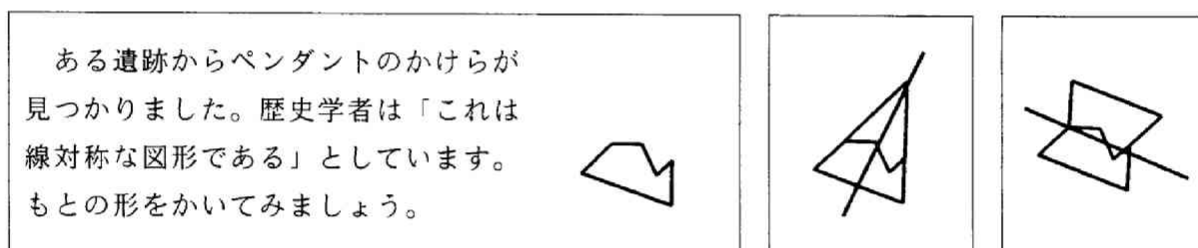 ある遺跡からペンダントのかけらが
見つかりました。歴史学者は「これは
線対称な図形である」としています。
もとの形をかいてみましょう。